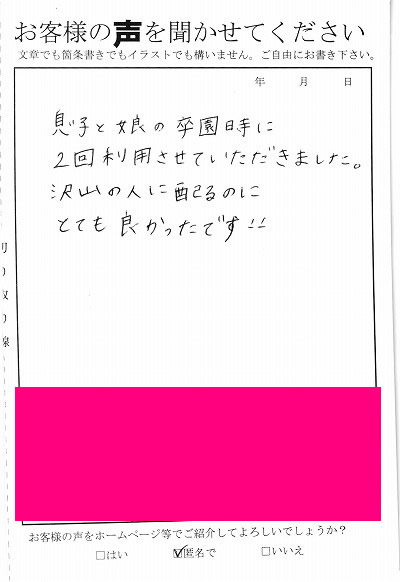 お客様の声を聞かせてください
文章でも箇条書きでもイラストでも構いません。ご自由にお書き下さい。
年 月 日
息子と娘の卒園時に
2回利用させていただきました。
沢山の人に配るのに
とても良かったです!!
切り取り線
お客様の声をホームページ等でご紹介してよろしいでしょうか?
□はい ☑匿名で □いいえ